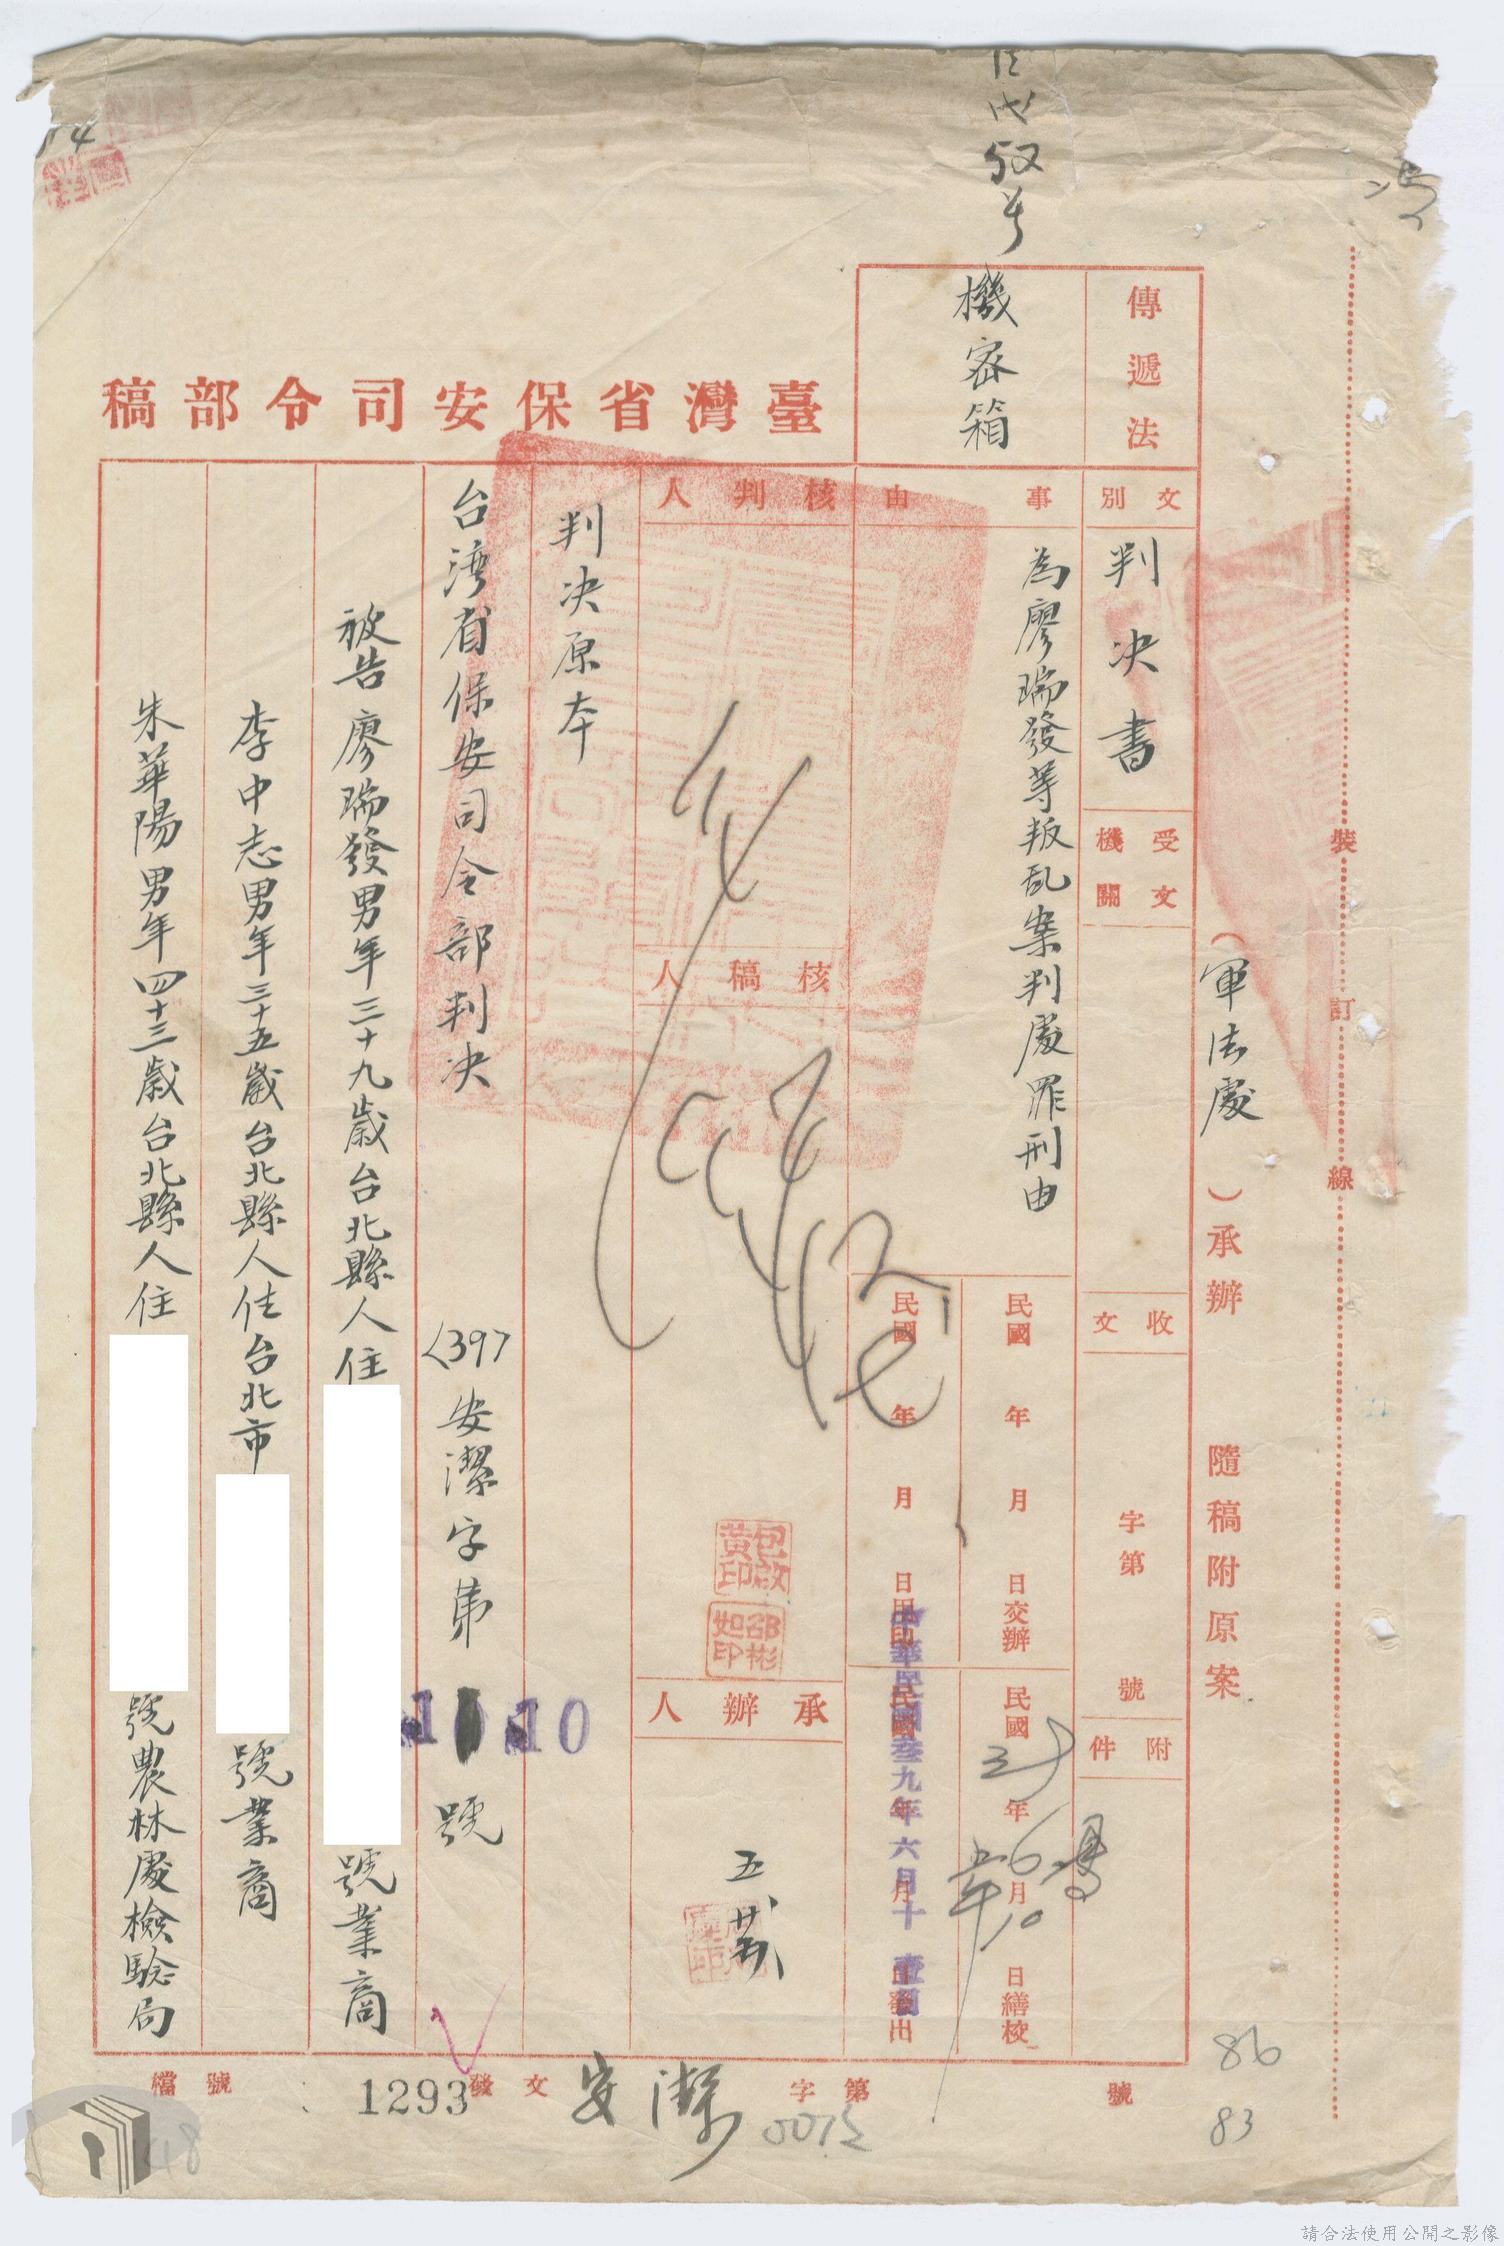 傳遞法
機密箱
臺灣省保安司令部稿
（軍法處）承辦　隨稿附原案
裝訂線
文別
判決書
受文機關
收文
字第　號
附件
事由
為廖瑞發等叛乱案判處罪刑由
民國　年　月　日交辦
民國　年6月10日繕校
民國　年　月　日用印
民國　年　月　日發出
中華民國叁九年六月十壹日
核判人
核稿人
包啟黃印
邵彬如印
承辦人
判决原本
台湾省保安司令部判决
〈39〉安潔字第1010號
被告廖瑞發男年三十九歲台北縣人住
號業商
李中志男年三十五歲台北縣人住台北市
號業商
朱華陽男年四十三歲台北縣人住
號農林處檢驗局
檔號
1293
發文安潔字第
號
86
83
請合法使用公開之影像